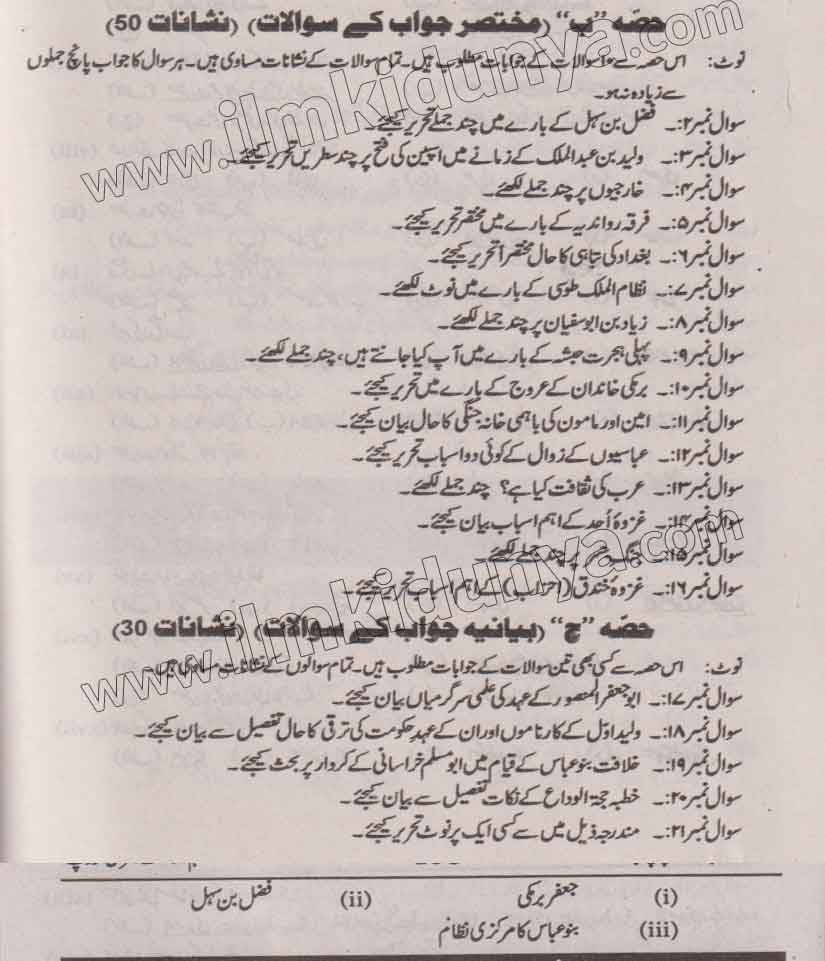 حصّہ "ب" (مختصر جواب کے سوالات) (نشانات 50)
نوٹ: اس حصہ سے ۱۰ سوالات کے جوابات مطلوب ہیں۔ تمام سوالات کے نشانات مساوی ہیں۔ ہر سوال کا جواب پانچ جملوں
سے زیادہ نہ ہو۔
سوال نمبر۲:۔ فضل بن سہل کے بارے میں چند جملے تحریر کیجئے۔
سوال نمبر۳:۔ ولید بن عبدالملک کے زمانے میں اسپین کی فتح پر چند سطریں تحریر کیجئے۔
سوال نمبر۴:۔ خارجیوں پر چند جملے لکھئے۔
سوال نمبر۵:۔ فرقہ رواندیہ کے بارے میں مختصر تحریر کیجئے۔
سوال نمبر۶:۔ بغداد کی تباہی کا حال مختصراً تحریر کیجئے۔
سوال نمبر۷:۔ نظام الملک طوسی کے بارے میں نوٹ لکھئے۔
سوال نمبر۸:۔ زیاد بن ابوسفیان پر چند جملے لکھئے۔
سوال نمبر۹:۔ پہلی ہجرت حبشہ کے بارے میں آپ کیا جانتے ہیں، چند جملے لکھئے۔
سوال نمبر۱۰:۔ برمکی خاندان کے عروج کے بارے میں تحریر کیجئے۔
سوال نمبر۱۱:۔ امین اور مامون کی باہمی خانہ جنگی کا حال بیان کیجئے۔
سوال نمبر۱۲:۔ عباسیوں کے زوال کے کوئی دو اسباب تحریر کیجئے۔
سوال نمبر۱۳:۔ عرب کی ثقافت کیا ہے؟ چند جملے لکھئے۔
سوال نمبر۱۴:۔ غزوۂ اُحد کے اہم اسباب بیان کیجئے۔
سوال نمبر۱۵:۔ جنگ پر چند جملے لکھئے۔
سوال نمبر۱۶:۔ غزوۂ خندق (احزاب) کے اہم اسباب تحریر کیجئے۔
حصّہ "ج" (بیانیہ جواب کے سوالات) (نشانات 30)
نوٹ: اس حصہ سے کسی بھی تین سوالات کے جوابات مطلوب ہیں۔ تمام سوالوں کے نشانات مساوی ہیں۔
سوال نمبر۱۷:۔ ابوجعفر المنصور کے عہد کی علمی سرگرمیاں بیان کیجئے۔
سوال نمبر۱۸:۔ ولید اوّل کے کارناموں اور ان کے عہدِ حکومت کی ترقی کا حال تفصیل سے بیان کیجئے۔
سوال نمبر۱۹:۔ خلافت بنو عباس کے قیام میں ابو مسلم خراسانی کے کردار پر بحث کیجئے۔
سوال نمبر۲۰:۔ خطبہ حجۃ الوداع کے نکات تفصیل سے بیان کیجئے۔
سوال نمبر۲۱:۔ مندرجہ ذیل میں سے کسی ایک پر نوٹ تحریر کیجئے۔
(i) جعفر برمکی (ii) فضل بن سہل
(iii) بنو عباس کا مرکزی نظام
www.ilmkidunya.com
www.ilmkidunya.com